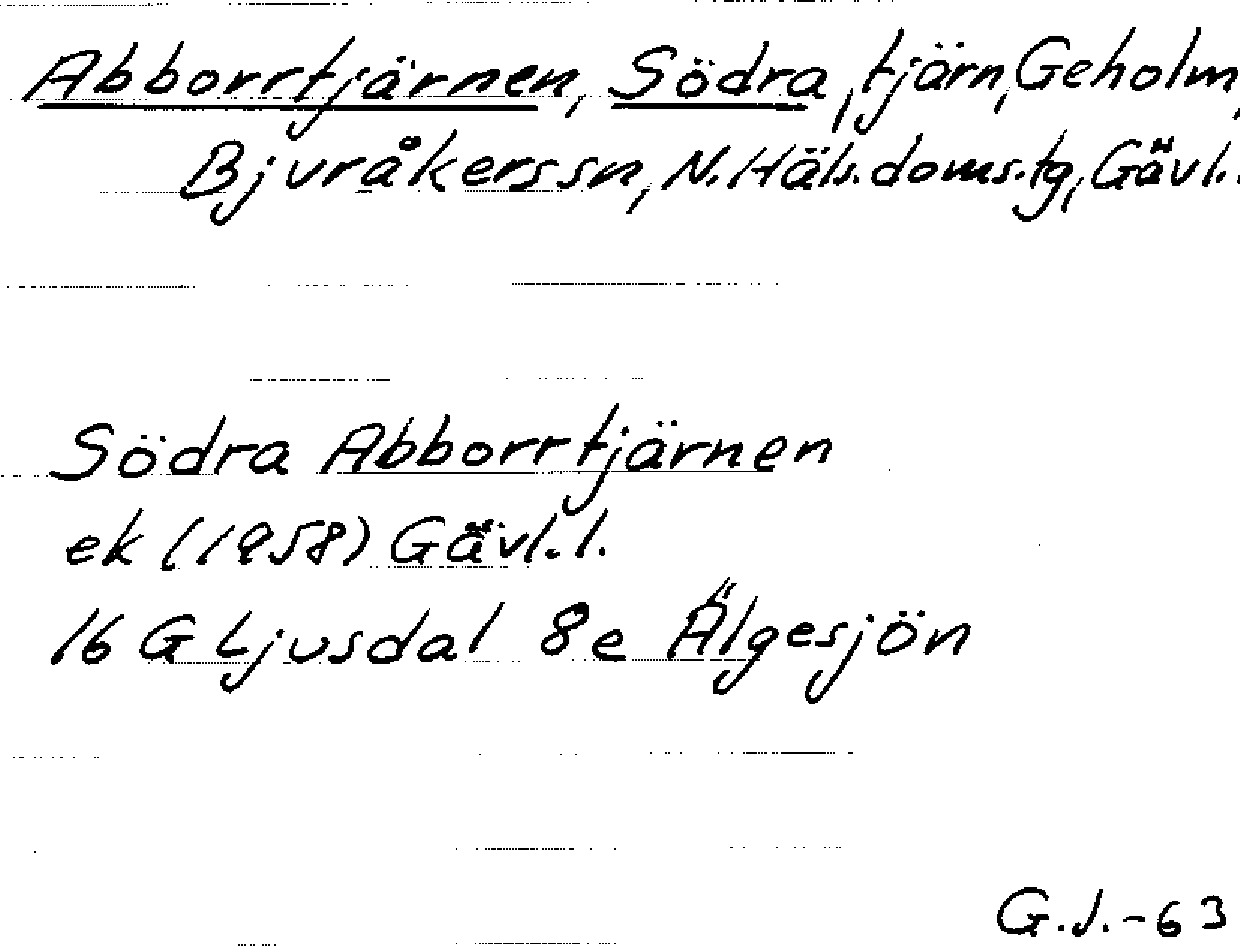 Abborrtjärnen, Södra, tjärn, Geholm,
Bjuråkerssn, N. Häls. doms. tg, Gävl.
Södra Abborrtjärnen
ek (1958) Gävl. l.
16 G Ljusdal 8e Älgesjön
G.J.-63